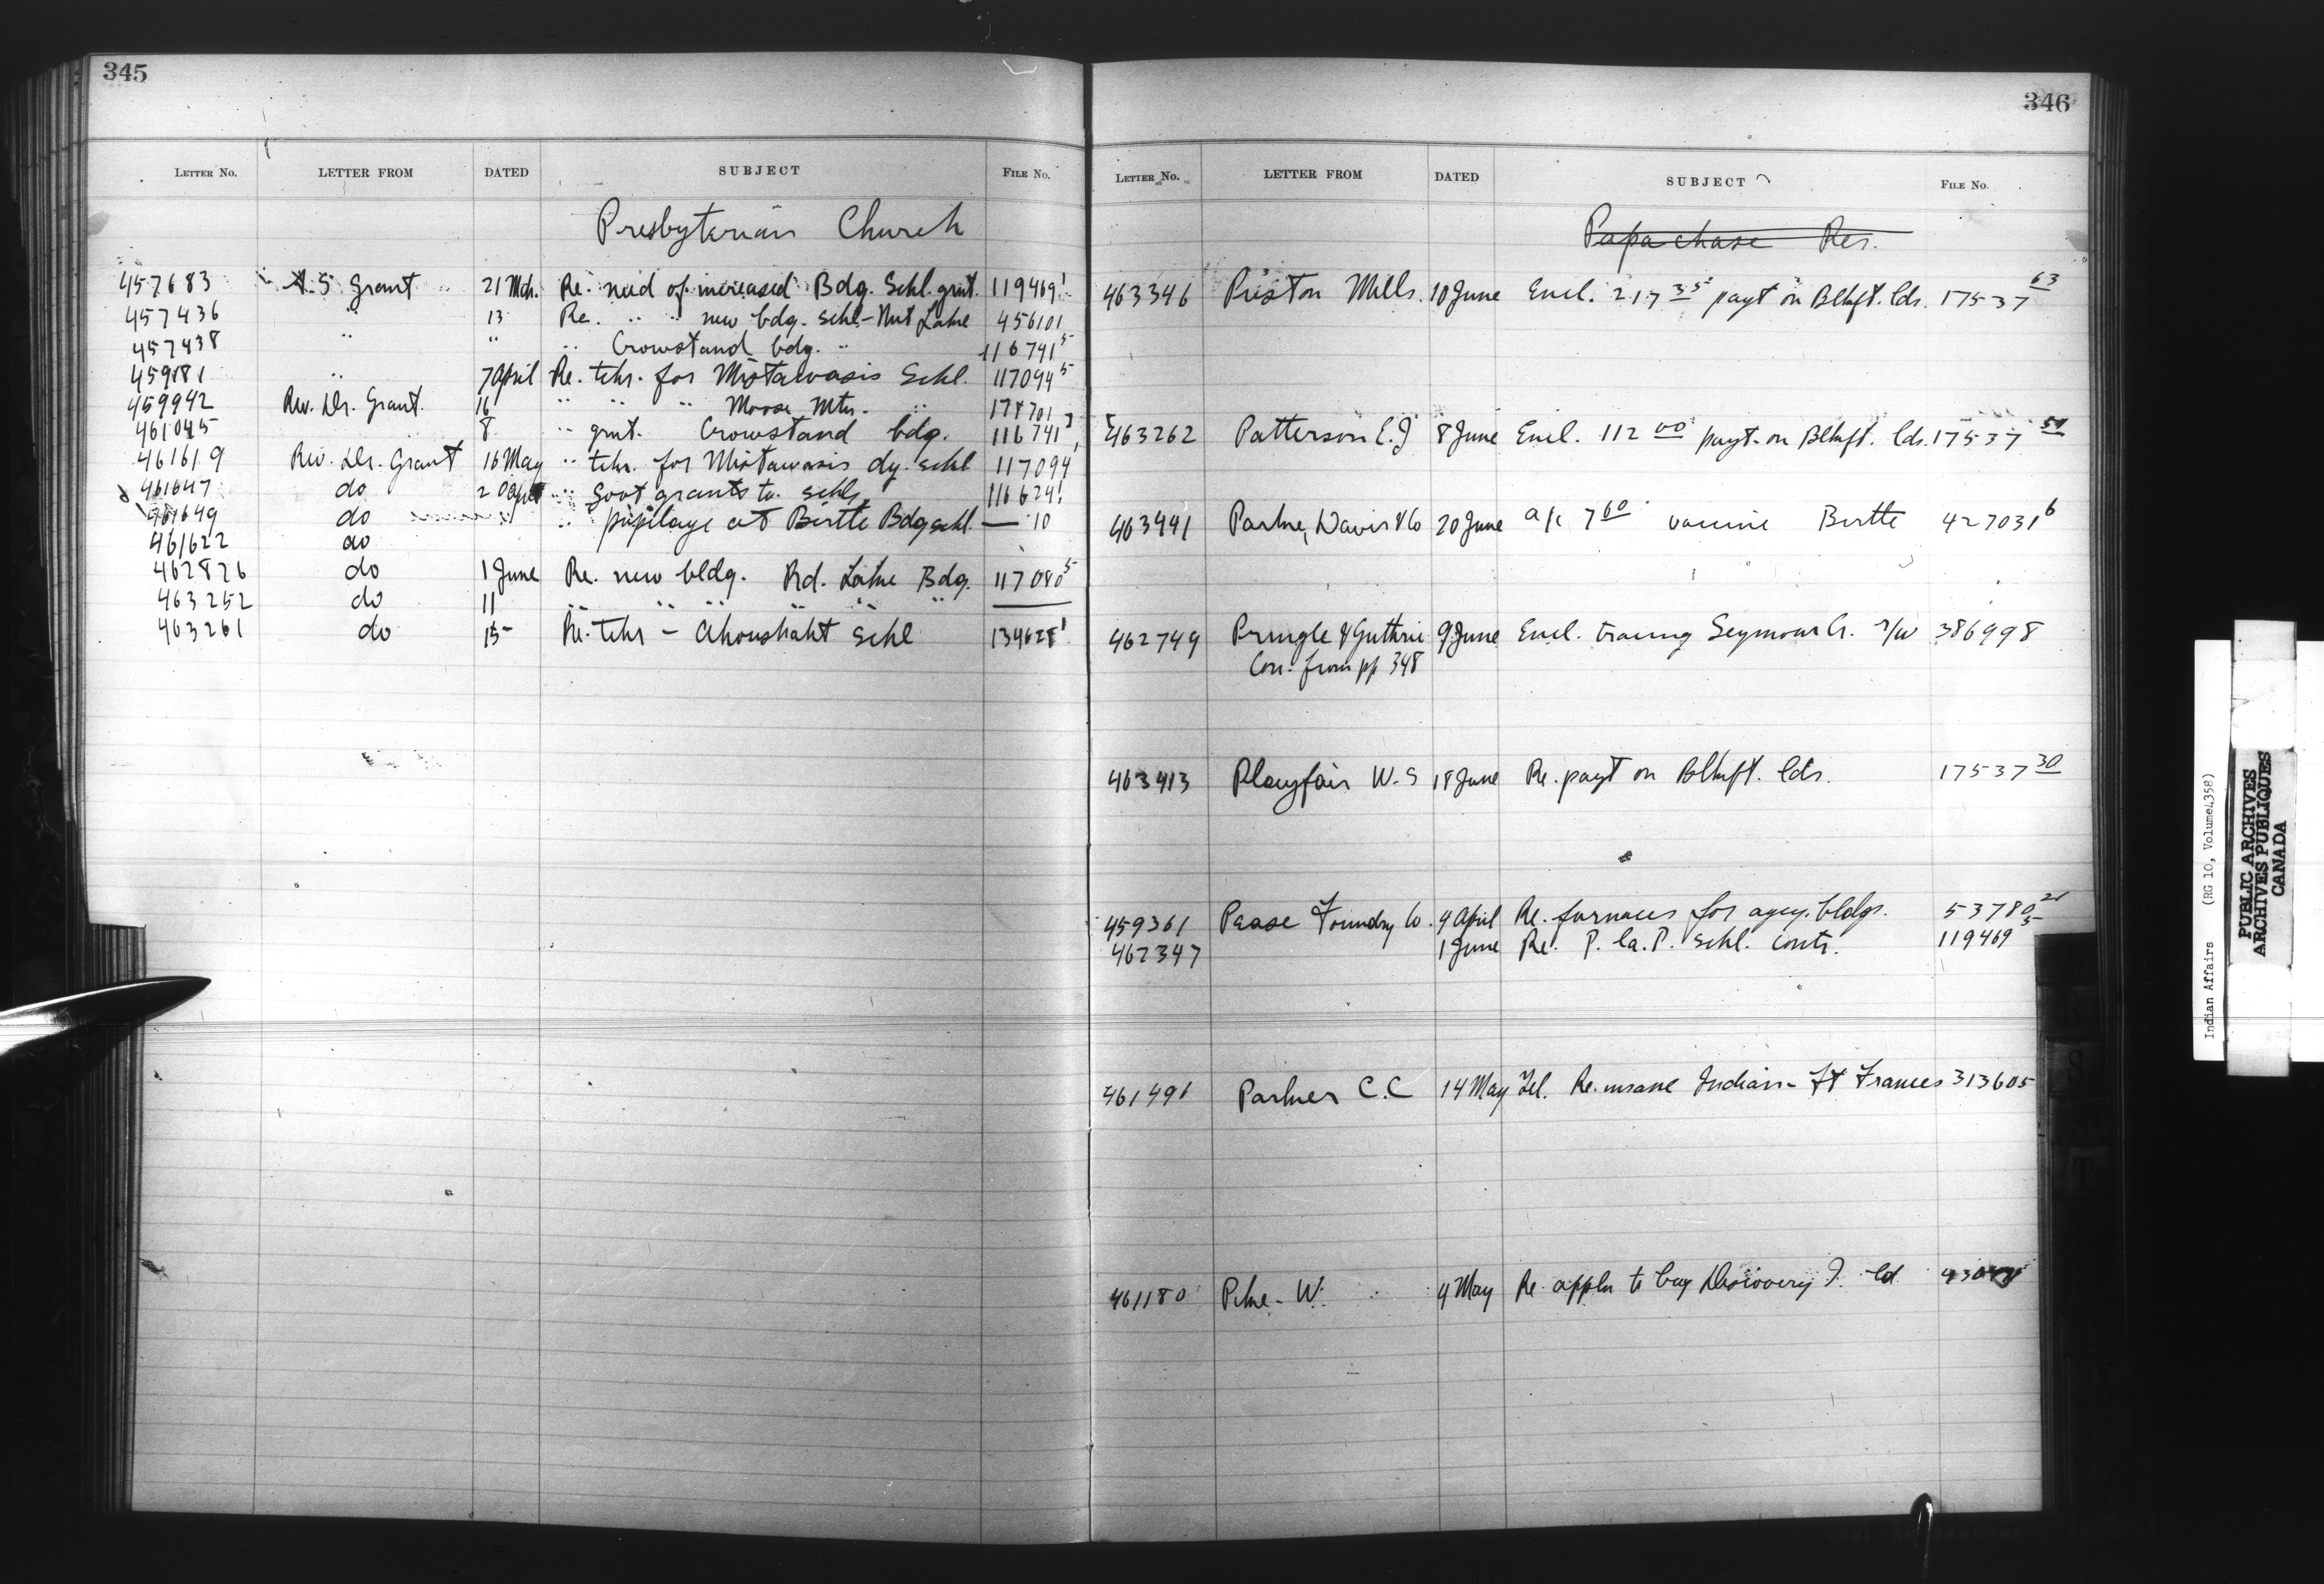 345
LETTER No. LETTER FROM DATED SUBJECT FILE No.
Presbyterian Church
457683 A. S Grant 21 Mch. Re. need of increased Bdg. Schl. grnt. 119469¹
457436 " 13 Re. " " new bdg. schl - Nut Lake 456101
457438 " " " Crowstand bdg. " 116741⁵
459181 " 7 April Re. tchr. for Mistawasis Schl. 117094⁵
459942 Rev. Dr. Grant. 16 " " " Moose Mtn. " 178701
461045 8 " grnt. Crowstand bdg. 116741
461619 Rev. Dr. Grant 16 May " tchr. for Mistawasis dy. schl 117094
461647 do 20 " Govt grants to schls 116624¹
461649 do " " pupilage at Birtle Bdg schl — 10
461622 do
462826 do 1 June Re. new bldg. Rd. Lake Bdg. 117080⁵
463252 do 11 " " " " " "
463261 do 15 Re. tchr - Ahoushaht Schl 134628¹
346
LETTER No. LETTER FROM DATED SUBJECT FILE No.
Papachase Res.
463346 Preston Mills. 10 June Encl. 217 35 payt on Blkft. lds. 17537 63
463262 Patterson E. J 8 June Encl. 112 00 payt. on Blkft. lds. 17537 51
463441 Parke, Davis & Co 20 June a/c 7 60 vaccine Birtle 427031⁶
462749 Pringle & Guthrie 9 June Encl. tracing Seymour Cr. r/w 386998
Con. from pp 348
463413 Playfair W. S 18 June Re. payt on Blkft. lds. 17537 30
459361 Pease Foundry Co. 9 April Re. furnaces for agcy. bldgs. 53780
462347 1 June Re. P. la. P. schl. contr. 119469 5
461491 Parker C. C 14 May Tel. Re. insane Indian - Ft Frances 313605
461180 Pike - W. 9 May Re appln to buy Discovery I. ld
Indian Affairs (RG 10, Volume 4358)
PUBLIC ARCHIVES
ARCHIVES PUBLIQUES
CANADA